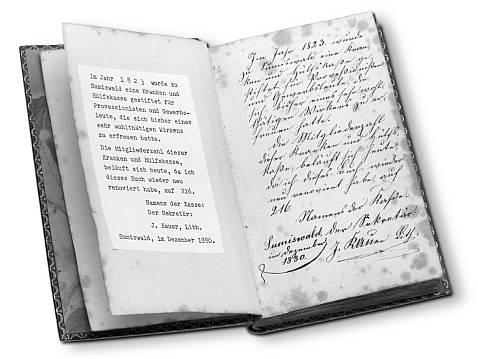 Im Jahr 1823 wurde zu
Sumiswald eine Kranken und
Hülfskasse gestiftet für
Professionisten und Gewerbs-
leute, die sich bisher eines
sehr wohlthätigen Wirkens
zu erfreuen hatte.
Die Mitgliederzahl dieser
Kranken und Hülfskasse,
beläuft sich heute, da ich
dieses Buch wieder neu
renoviert habe, auf 216.
Namens der Kasse:
Der Sekretär:
J. Kauer, Lith.
Sumiswald, im Dezember 1880.
Im Jahr 1823. wurde
zu Sumiswald eine Kran-
ken und Hülfskasse ge-
stiftet für Professionisten
und Gewerbsleute, die
sich bisher eines sehr wohl-
thätigen Wirkens zu er-
freuen hatte.
Die Mitgliederzahl
dieser Kranken und Hülfs-
kasse, beläuft sich heute,
da ich dieses Buch wieder
neu renoviert habe, auf
216.
Namens der Kasse:
Der Sekretär
Sumiswald
im Dezember
1880.
J. Kauer Lith.